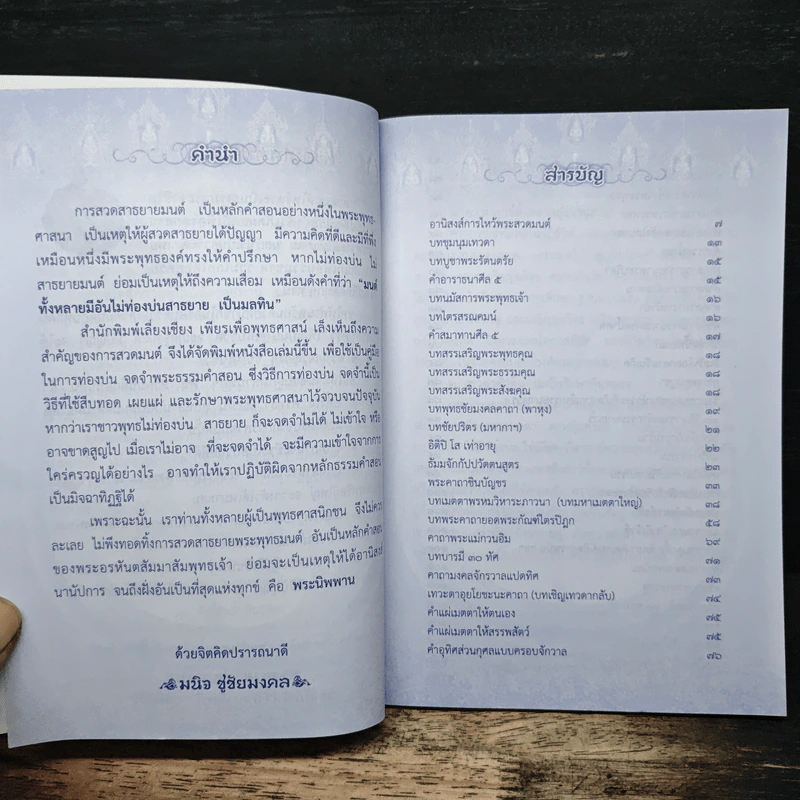 คำนำ
การสวดสาธยายมนต์ เป็นหลักคำสอนอย่างหนึ่งในพระพุทธ-
ศาสนา เป็นเหตุให้ผู้สวดสาธยายได้ปัญญา มีความคิดที่ดีและมีที่พึ่ง
เหมือนหนึ่งมีพระพุทธองค์ทรงให้คำปรึกษา หากไม่ท่องบ่น ไม่
สาธยายมนต์ ย่อมเป็นเหตุให้ถึงความเสื่อม เหมือนดังคำที่ว่า “มนต์
ทั้งหลายมีอันไม่ท่องบ่นสาธยาย เป็นมลทิน”
สำนักพิมพ์เลี่ยงเชียง เพียรเพื่อพุทธศาสน์ เล็งเห็นถึงความ
สำคัญของการสวดมนต์ จึงได้จัดพิมพ์หนังสือเล่มนี้ขึ้น เพื่อใช้เป็นคู่มือ
ในการท่องบ่น จดจำพระธรรมคำสอน ซึ่งวิธีการท่องบ่น จดจำนี้เป็น
วิธีที่ใช้สืบทอด เผยแผ่ และรักษาพระพุทธศาสนาไว้จวบจนปัจจุบัน
หากว่าเราชาวพุทธไม่ท่องบ่น สาธยาย ก็จะจดจำไม่ได้ ไม่เข้าใจ หรือ
อาจขาดสูญไป เมื่อเราไม่อาจ ที่จะจดจำได้ จะมีความเข้าใจจากการ
ใคร่ครวญได้อย่างไร อาจทำให้เราปฏิบัติผิดจากหลักธรรมคำสอน
เป็นมิจฉาทิฏฐิได้
เพราะฉะนั้น เราท่านทั้งหลายผู้เป็นพุทธศาสนิกชน จึงไม่ควร
ละเลย ไม่พึงทอดทิ้งการสวดสาธยายพระพุทธมนต์ อันเป็นหลักคำสอน
ของพระอรหันตสัมมาสัมพุทธเจ้า ย่อมจะเป็นเหตุให้ได้อานิสงส์
นานัปการ จนถึงฝั่งอันเป็นที่สุดแห่งทุกข์ คือ พระนิพพาน
ด้วยจิตคิดปรารถนาดี
มนิจ ชู่ชัยมงคล
สารบัญ
อานิสงส์การไหว้พระสวดมนต์ ๗
บทชุมนุมเทวดา ๑๓
บทบูชาพระรัตนตรัย ๑๕
คำอาราธนาศีล ๕ ๑๕
บทนมัสการพระพุทธเจ้า ๑๖
บทไตรสรณคมน์ ๑๖
คำสมาทานศีล ๕ ๑๗
บทสรรเสริญพระพุทธคุณ ๑๘
บทสรรเสริญพระธรรมคุณ ๑๘
บทสรรเสริญพระสังฆคุณ ๑๘
บทพุทธชัยมงคลคาถา (พาหุง) ๑๙
บทชัยปริตร (มหากาฯ) ๒๑
อิติปิ โส เท่าอายุ ๒๒
ธัมมจักกัปปวัตตนสูตร ๒๓
พระคาถาชินบัญชร ๓๓
บทเมตตาพรหมวิหาระภาวนา (บทมหาเมตตาใหญ่) ๓๘
บทพระคาถายอดพระกัณฑ์ไตรปิฎก ๕๘
คาถาพระแม่กวนอิม ๖๙
บทบารมี ๓๐ ทัศ ๗๑
คาถามงคลจักรวาลแปดทิศ ๗๓
เทวะตาอุยโยชะนะคาถา (บทเชิญเทวดากลับ) ๗๔
คำแผ่เมตตาให้ตนเอง ๗๕
คำแผ่เมตตาให้สรรพสัตว์ ๗๕
คำอุทิศส่วนกุศลแบบครอบจักวาล ๗๖